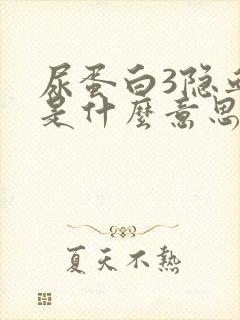 尿蛋白3隐
是什麼意思
夏天不熱